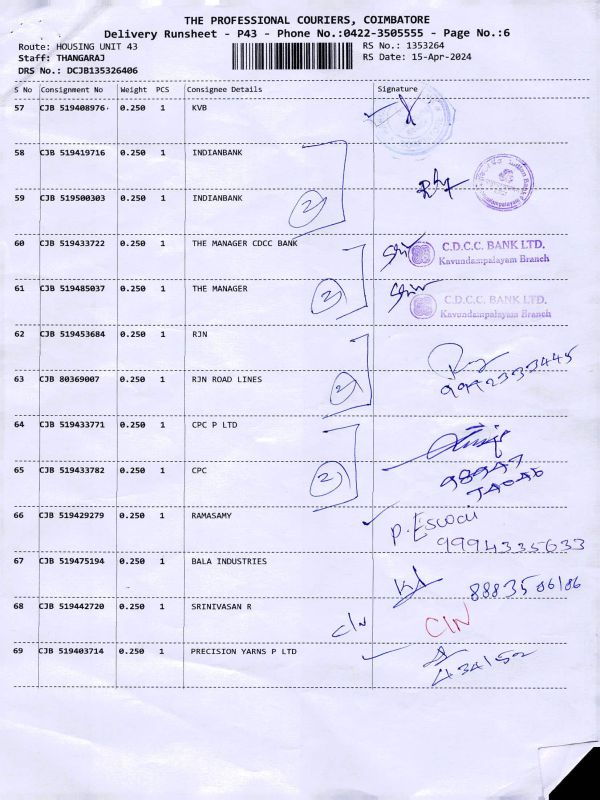 THE PROFESSIONAL COURIERS, COIMBATORE
Delivery Runsheet - P43 - Phone No.:0422-3505555 - Page No.:6
Route: HOUSING UNIT 43 RS No.: 1353264
Staff: THANGARAJ RS Date: 15-Apr-2024
DRS No.: DCJB135326406
S No Consignment No Weight PCS Consignee Details Signature
57 CJB 519408976 0.250 1 KVB
58 CJB 519419716 0.250 1 INDIANBANK
59 CJB 519500303 0.250 1 INDIANBANK 2
60 CJB 519433722 0.250 1 THE MANAGER CDCC BANK C.D.C.C. BANK LTD.
Kavundampalayam Branch
61 CJB 519485037 0.250 1 THE MANAGER 2 C.D.C.C. BANK LTD.
Kavundampalayam Branch
62 CJB 519453684 0.250 1 RJN
63 CJB 80369007 0.250 1 RJN ROAD LINES 2
64 CJB 519433771 0.250 1 CPC P LTD
65 CJB 519433782 0.250 1 CPC 2
66 CJB 519429279 0.250 1 RAMASAMY P. Eswari
9994335633
67 CJB 519475194 0.250 1 BALA INDUSTRIES 8883506186
68 CJB 519442720 0.250 1 SRINIVASAN R C/N C/N
69 CJB 519403714 0.250 1 PRECISION YARNS P LTD
434152